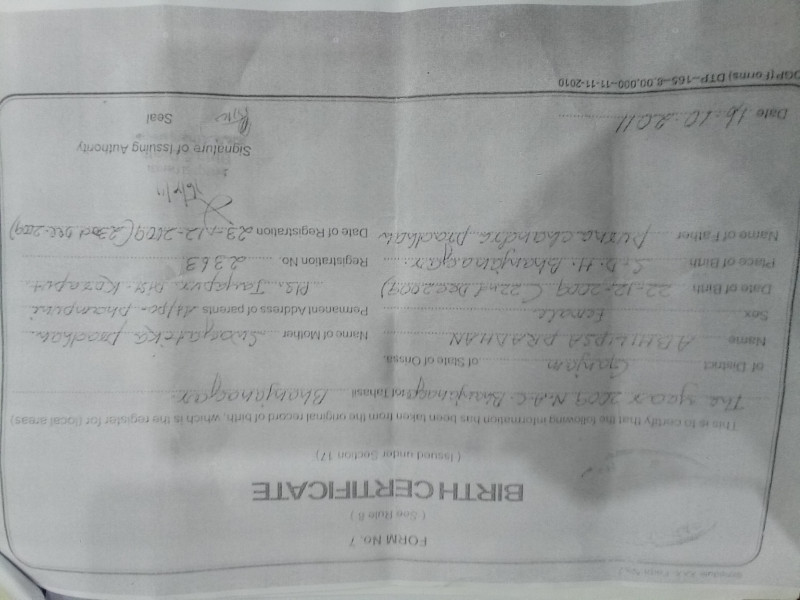 FORM No. 7
( See Rule 8 )
BIRTH CERTIFICATE
( Issued under Section 17 )
This is to certify that the following information has been taken from the original record of birth, which is the register for (local areas)
The year 2009 N.A.C. Bhanjanagar of Tahasil Bhanjanagar
of District Ganjam of State of Orissa.
Name ABHILIPSA PRADHAN Name of Mother pradhan
Sex Female Permanent Address of parents At/po-
Date of Birth 22-12-2009 (22nd Dec 2009) PS. Jaypur Dist-Koraput
Place of Birth S.D.H. Bhanjanagar. Registration No. 2363
Name of Father Purna chandra pradhan Date of Registration 23-12-2009 (23rd Dec-2009)
Signature of Issuing Authority
Date 16-10-2011 Seal
OGP (Forms) DTP-165-8,00,000-11-11-2010